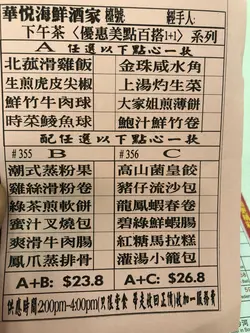 華悦海鮮酒家 檯號 經手人:
下午茶〈優惠美點百搭1+1〉系列
A 任選以下點心一款
北菰滑雞飯 金珠咸水角
生煎虎皮尖椒 上湯灼生菜
鮮竹牛肉球 大家姐煎薄餅
時菜鯪魚球 鮑汁鮮竹卷
配任選以下點心一款
#355 B #356 C
潮式蒸粉果 高山菌皇餃
雞絲滑粉卷 豬仔流沙包
綠茶煎軟餅 龍鳳蝦春卷
蜜汁叉燒包 碧綠鮮蝦腸
爽滑牛肉腸 紅糖馬拉糕
鳳爪蒸排骨 灌湯小籠包
A+B: $23.8 A+C: $26.8
供應時間2:00pm-4:00pm(只限堂食 需是收正價)收加一服務費